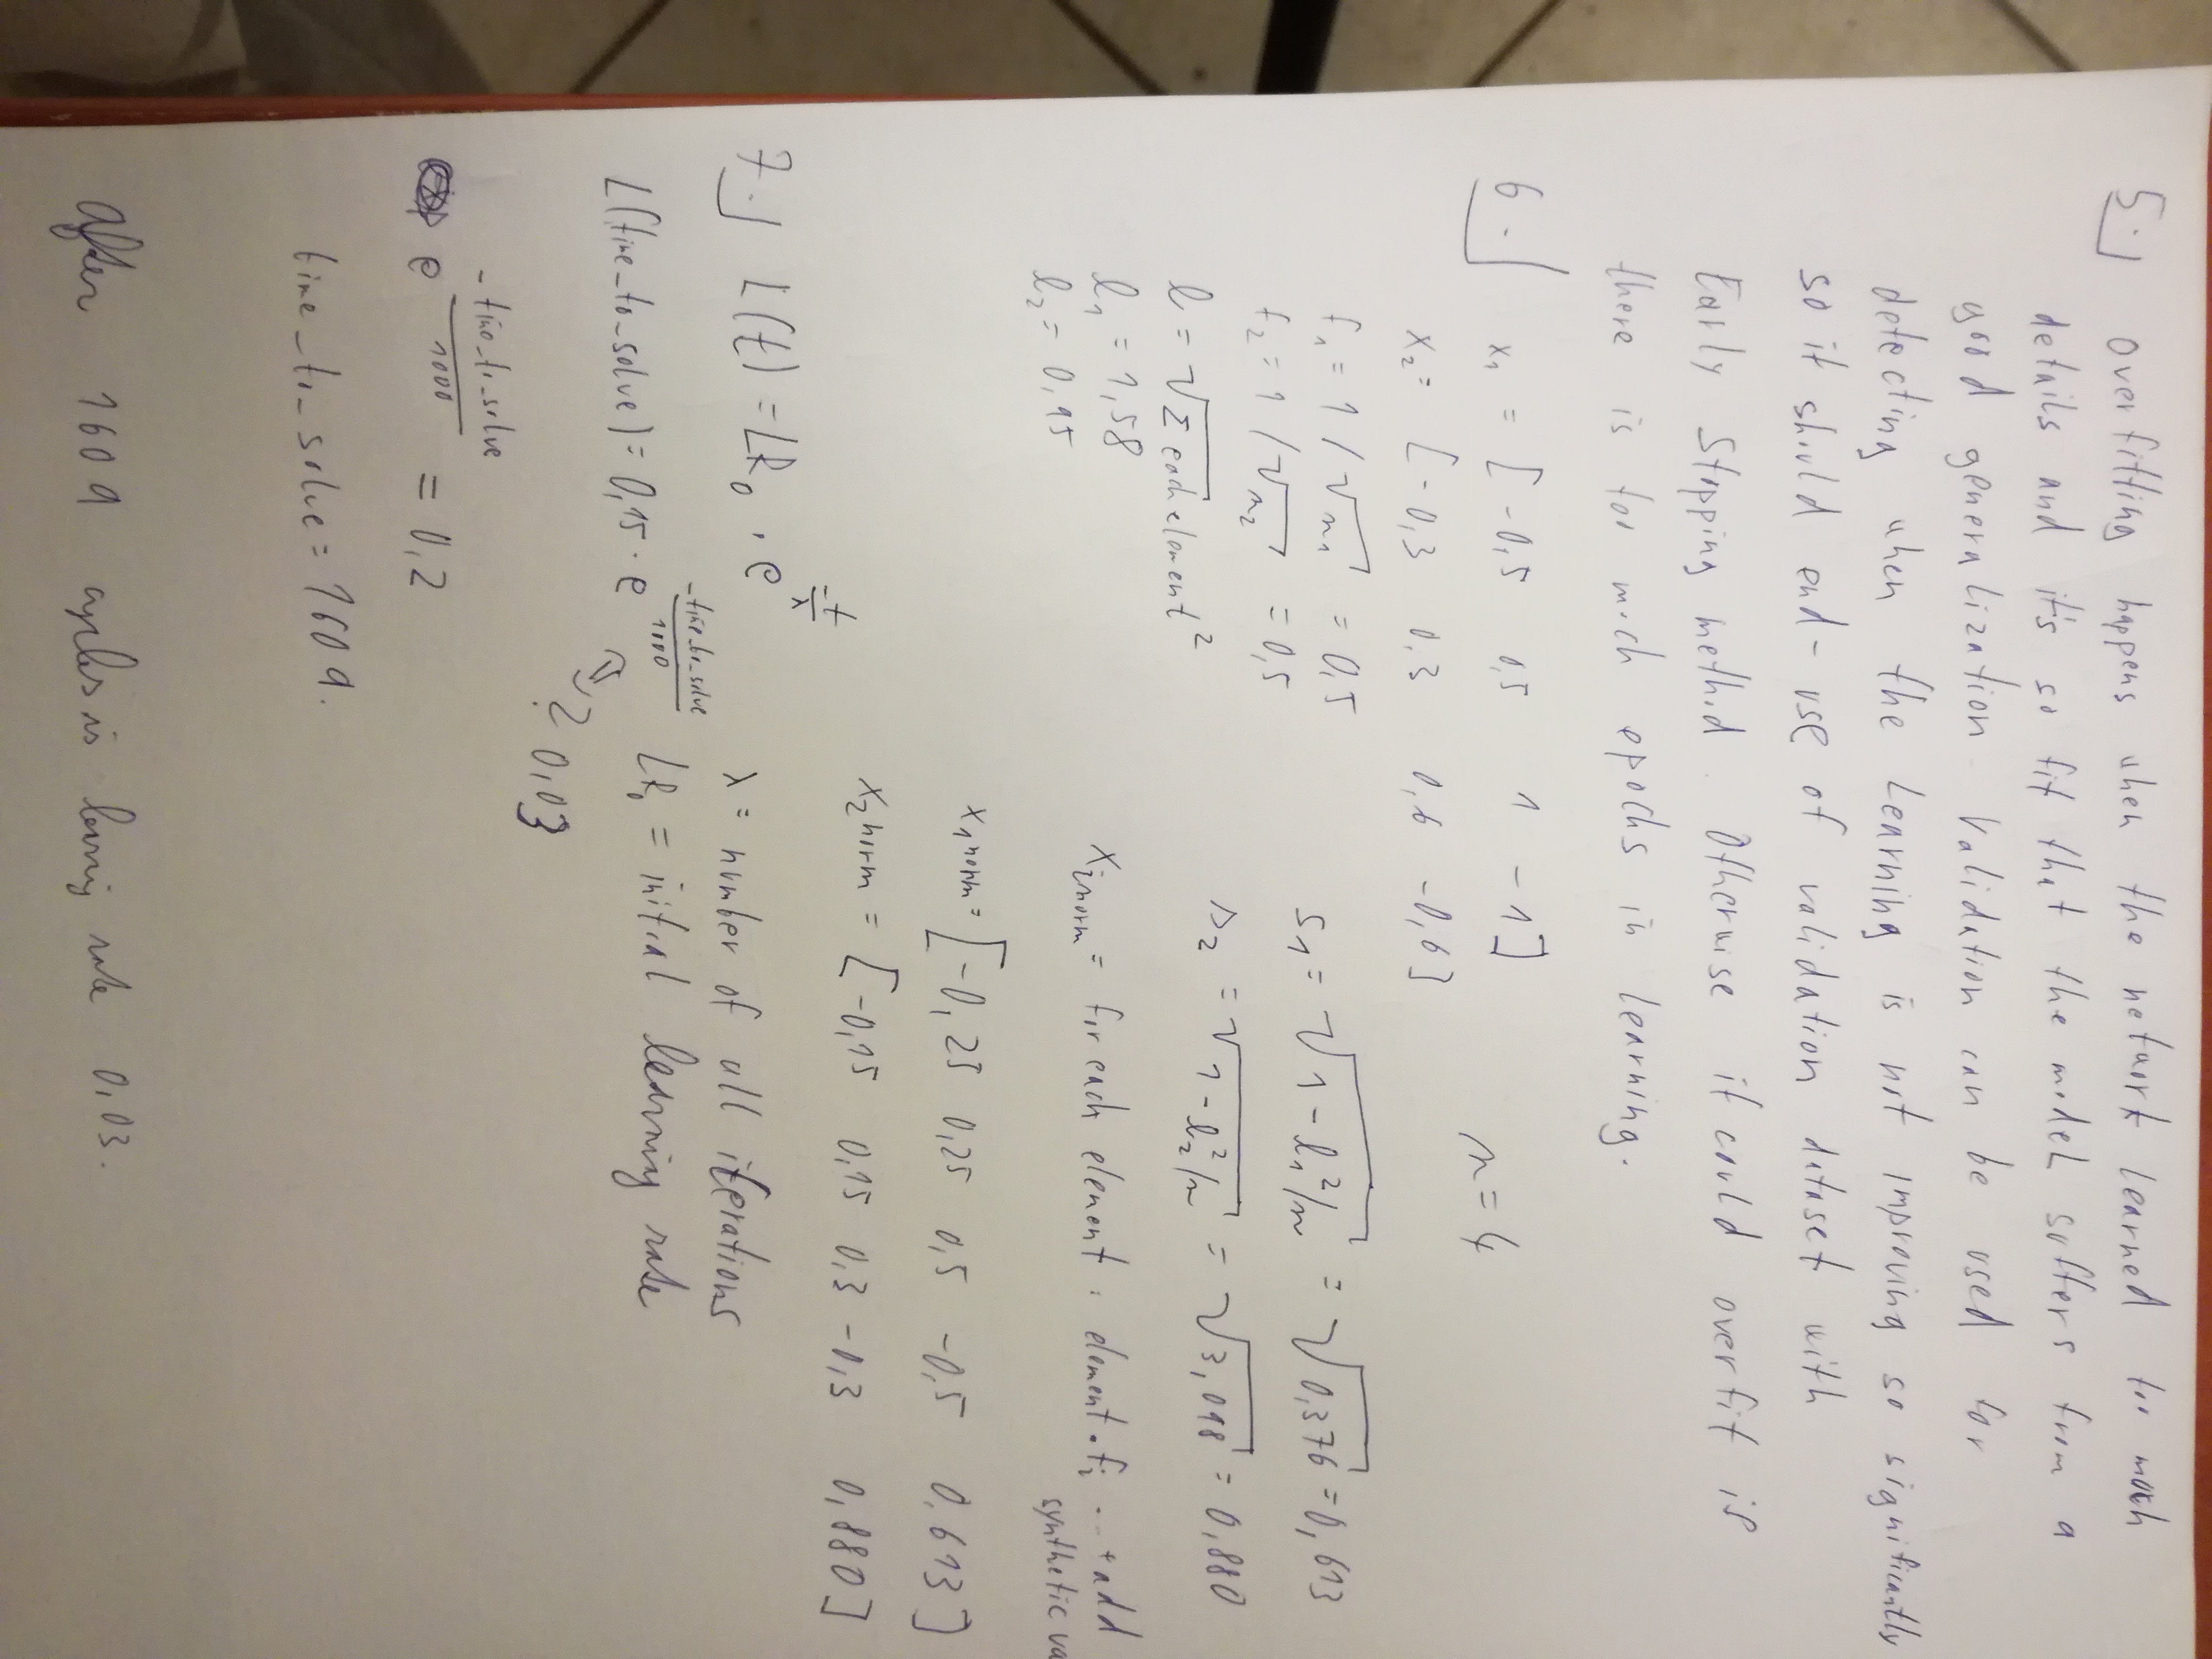 5.) Overfitting happens when the network learned too much
details and it's so fit that the model suffers from a
good generalization. Validation can be used for
detecting when the learning is not improving so significantly
so it should end - use of validation dataset with
Early Stopping method. Otherwise it could overfit if
there is too much epochs in learning.
6.) x₁ = [-0,5 0,5 1 -1]
n = 4
x₂ = [-0,3 0,3 0,6 -0,6]
f₁ = 1/√n₁ = 0,5
s₁ = √1-l₁²/n = √0,376 = 0,613
f₂ = 1/√n₂ = 0,5
s₂ = √1-l₂²/n = √3,098 = 0,880
l = √Σ each element²
l₁ = 1,58
l₂ = 0,95
xᵢnorm = for each element: element · fᵢ ... + add
synthetic va
x₁norm = [-0,25 0,25 0,5 -0,5 0,613]
x₂norm = [-0,15 0,15 0,3 -0,3 0,880]
7.) L(t) = LR₀ · e^(-t/λ)
λ = number of all iterations
L(time_to_solve) = 0,15 · e^(-time_to_solve/1000)
LR₀ = initial learning rate
? 0,03
e^(-time_to_solve/1000) = 0,2
time_to_solve = 1609.
After 1609 cycles is learning rate 0,03.